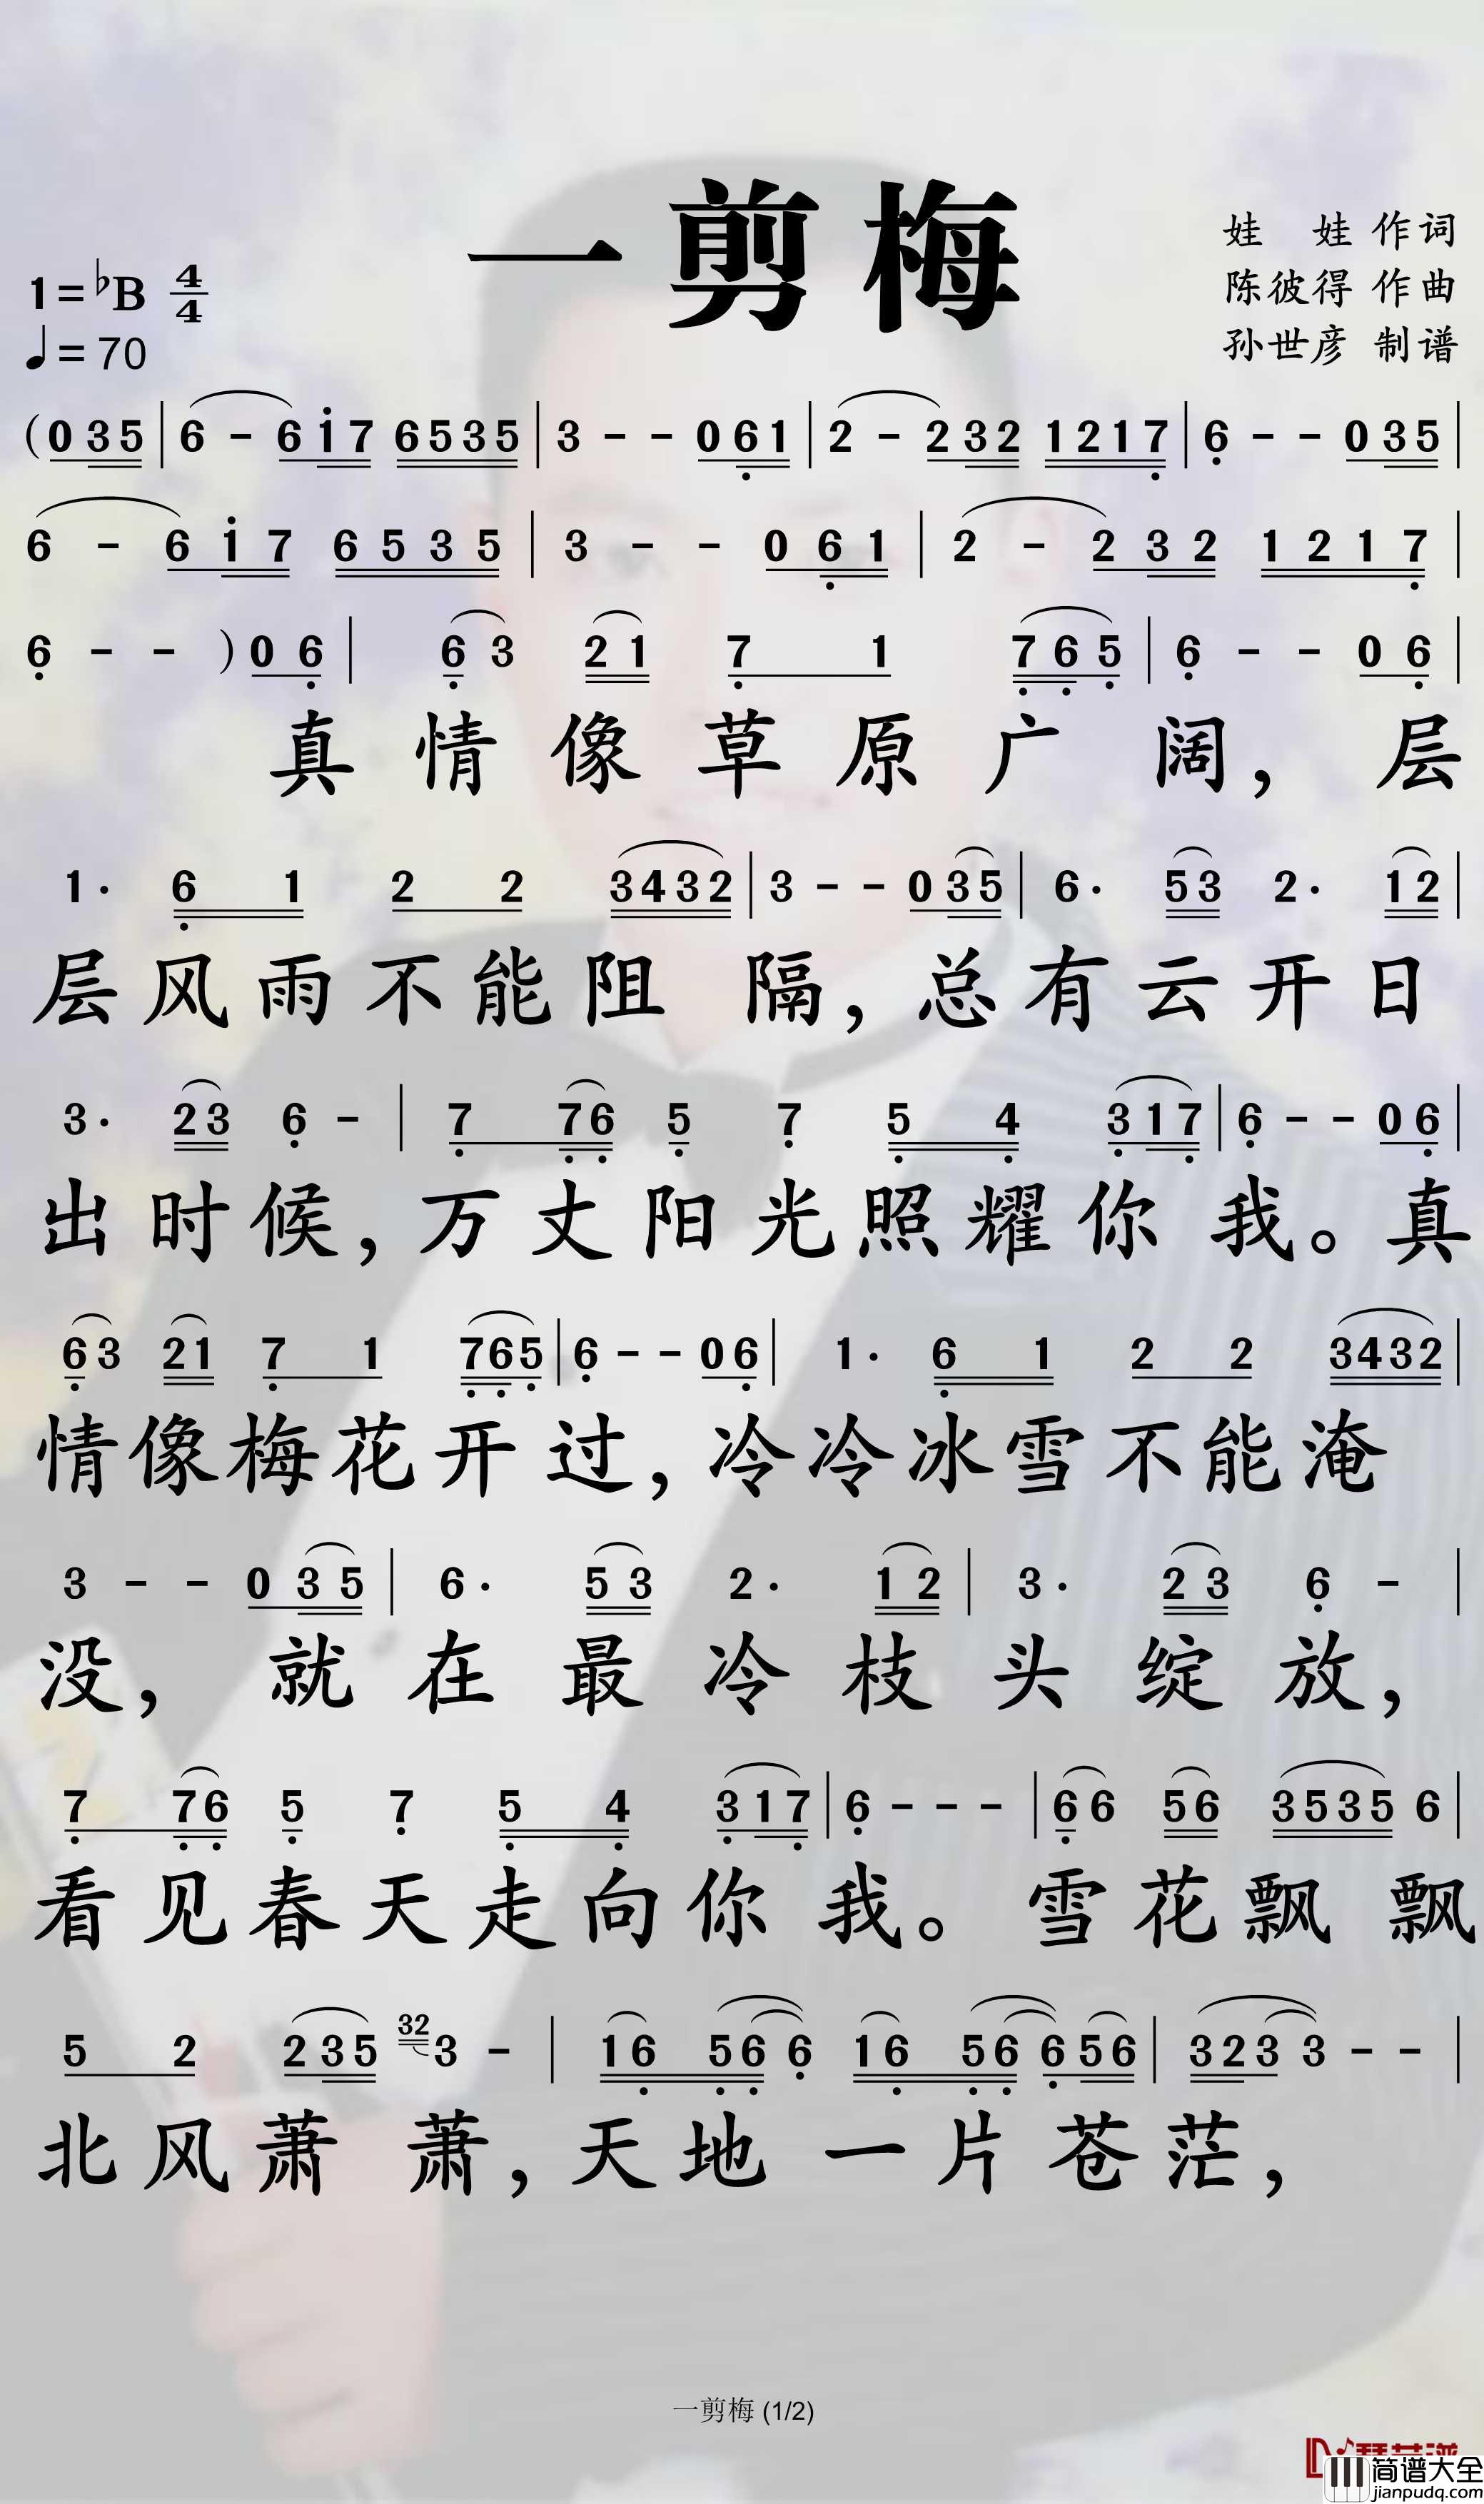 一剪梅
娃 娃 作词
陈彼得 作曲
孙世彦 制谱
1=♭B 4/4
♩=70
(0 3 5 | 6 - 6 1̇ 7 6 5 3 5 | 3 - - 0 6̣ 1 | 2 - 2 3 2 1 2 1 7̣ | 6̣ - - 0 3 5 |
6 - 6 1̇ 7 6 5 3 5 | 3 - - 0 6̣ 1 | 2 - 2 3 2 1 2 1 7̣ |
6̣ - - ) 0 6̣ | 6̣ 3 2 1 7̣ 1 7̣ 6̣ 5̣ | 6̣ - - 0 6̣ |
真 情 像 草 原 广 阔, 层
1· 6̣ 1 2 2 3 4 3 2 | 3 - - 0 3 5 | 6· 5 3 2· 1 2 |
层 风 雨 不 能 阻 隔, 总 有 云 开 日
3· 2 3 6̣ - | 7̣ 7̣ 6̣ 5̣ 7̣ 5̣ 4̣ 3̣ 1 7̣ | 6̣ - - 0 6̣ |
出 时 候, 万 丈 阳 光 照 耀 你 我。真
6̣ 3 2 1 7̣ 1 7̣ 6̣ 5̣ | 6̣ - - 0 6̣ | 1· 6̣ 1 2 2 3 4 3 2 |
情 像 梅 花 开 过, 冷 冷 冰 雪 不 能 淹
3 - - 0 3 5 | 6· 5 3 2· 1 2 | 3· 2 3 6̣ - |
没, 就 在 最 冷 枝 头 绽 放,
7̣ 7̣ 6̣ 5̣ 7̣ 5̣ 4̣ 3̣ 1 7̣ | 6̣ - - - | 6̣ 6 5 6 3 5 3 5 6 |
看 见 春 天 走 向 你 我。 雪 花 飘 飘
5 2 2 3 5 32 3 - | 1 6̣ 5̣ 6̣ 6̣ 1 6̣ 5̣ 6̣ 6̣ 5 6 | 3 2 3 3 - - |
北 风 萧 萧, 天 地 一 片 苍 茫,
一剪梅 (1/2)
简谱大全
jianpudq.com